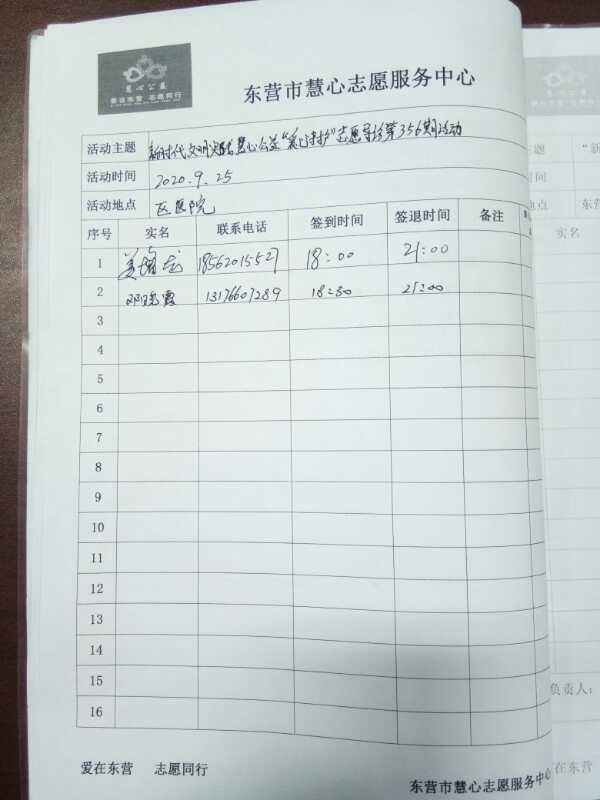 慧心公益
爱在东营 志愿同行
东营市慧心志愿服务中心
活动主题 新时代文明实践慧心公益“ 志愿导诊第356期活动
活动时间 2020.9.25
活动地点 区医院
序号 实名 联系电话 签到时间 签退时间 备注
1 18562015527 18:00 21:00
2 邓晓霞 13176607289 18:30 21:00
3
4
5
6
7
8
9
10
11
12
13
14
15
16
爱在东营 志愿同行
东营市慧心志愿服务中心
主题 “新
时间
地点 东营
实名
负责人:
在东营